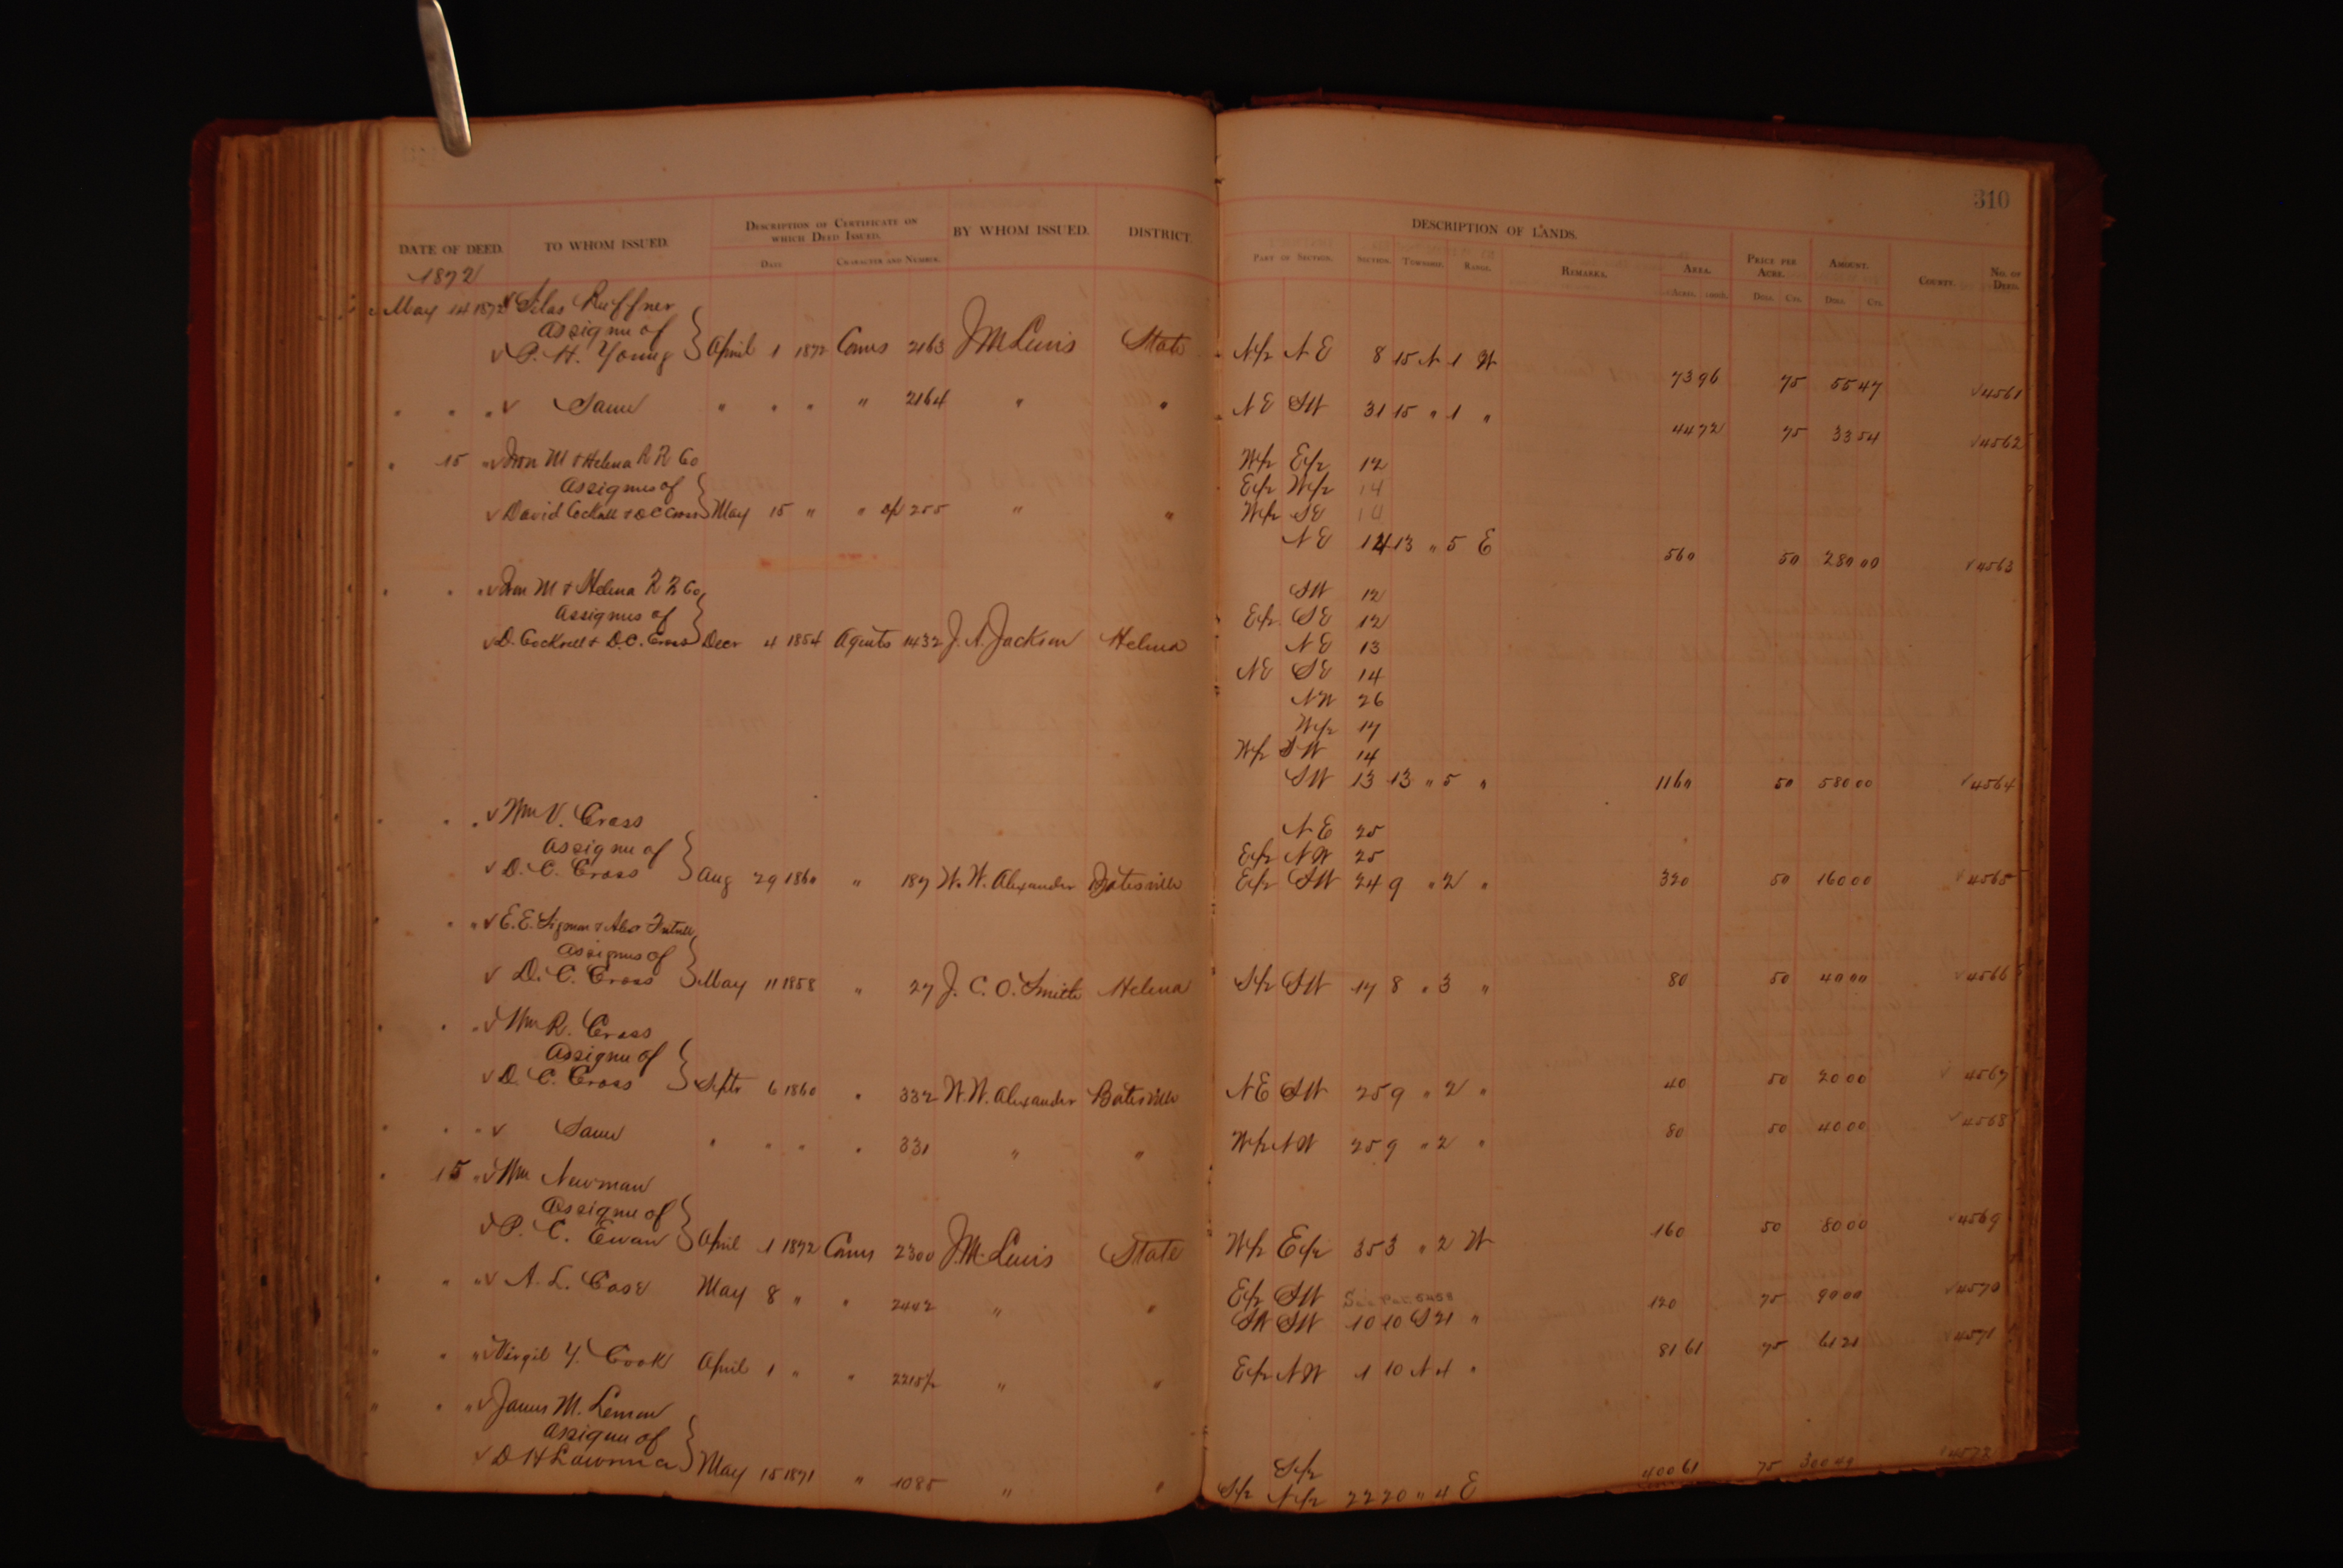 310
DESCRIPTION OF LANDS.
DATE OF DEED. TO WHOM ISSUED. DESCRIPTION OF CERTIFICATE ON WHICH DEED ISSUED. BY WHOM ISSUED. DISTRICT
DATE CHARACTER AND NUMBER.
PART OF SECTION. SECTION. TOWNSHIP. RANGE. REMARKS. AREA. PRICE PER ACRE. AMOUNT. COUNTY. NO. OF DEED.
ACRES. DOLL. CTS. DOLL. CTS.
1872
May 14 1872 √ Silas Ruffner
Assignee of
√ P. H. Young } April 1 1872 Comrs 2163 J M Lewis State N/2 N E 8 15 N 1 W 73 96 75 55 47 √4561
" " " √ Same " " " " 2164 " " N E S W 31 15 " 1 " 44 72 75 33 54 √4562
" 15 " √ Iron M & Helena R R Co W/2 E/2 12
Assignees of E/2 W/2 14
√ David Cockrell & D C Cross } May 15 " " of 255 " " W/2 S E 14
N E 14 13 " 5 E 560 50 280 00 √4563
" " " √ Iron M & Helena R R Co S W 12
Assignees of E/2 S E 12
√ D. Cockrell & D. C. Cross } Decr 4 1854 Agents 1432 J. A. Jackson Helena N E 13
N E S E 14
N W 26
W/2 14
W/2 S W 14
S W 13 13 " 5 " 1160 50 580 00 √4564
" " " √ Wm V. Cross N E 25
Assignee of E/2 N W 25
√ D. C. Cross } Aug 29 1860 " 187 W. W. Alexander Batesville E/2 S W 24 9 " 2 " 320 50 160 00 4565
" " √ E. E. Sigman & Alex
Assignees of
√ D. C. Cross } May 11 1858 " 27 J. C. O. Smith Helena S/2 S W 17 8 " 3 " 80 50 40 00 √4566
" " " √ Wm R. Cross
Assignee of
√ D. C. Cross } Septr 6 1860 " 332 W. W. Alexander Batesville N E S W 25 9 " 2 " 40 50 20 00 √ 4567
" " " √ Same " " " " 331 " " W/2 N W 25 9 " 2 " 80 50 40 00 √4568
" 15 " √ Wm Newman
Assignee of
√ P. C. Ewan } April 1 1872 Comrs 2300 J. M. Lewis State W/2 E/2 35 3 " 2 W 160 50 80 00 √4569
" " " √ A. L. Case May 8 " " 2442 " " E/2 S W See Pat. 5458
S W S W 10 10 S 21 " 120 75 90 00 √4570
" " " √ Virgil Y. Cook April 1 " " 2215 1/2 " " E/2 N W 1 10 N 4 " 81 61 75 61 21 √4571
" " " √ James M. Lemon
Assignee of S/2
√ D H Lawrence } May 15 1871 " 1085 " " S/2 N/2 22 20 " 4 E 400 61 75 300 49 √4572